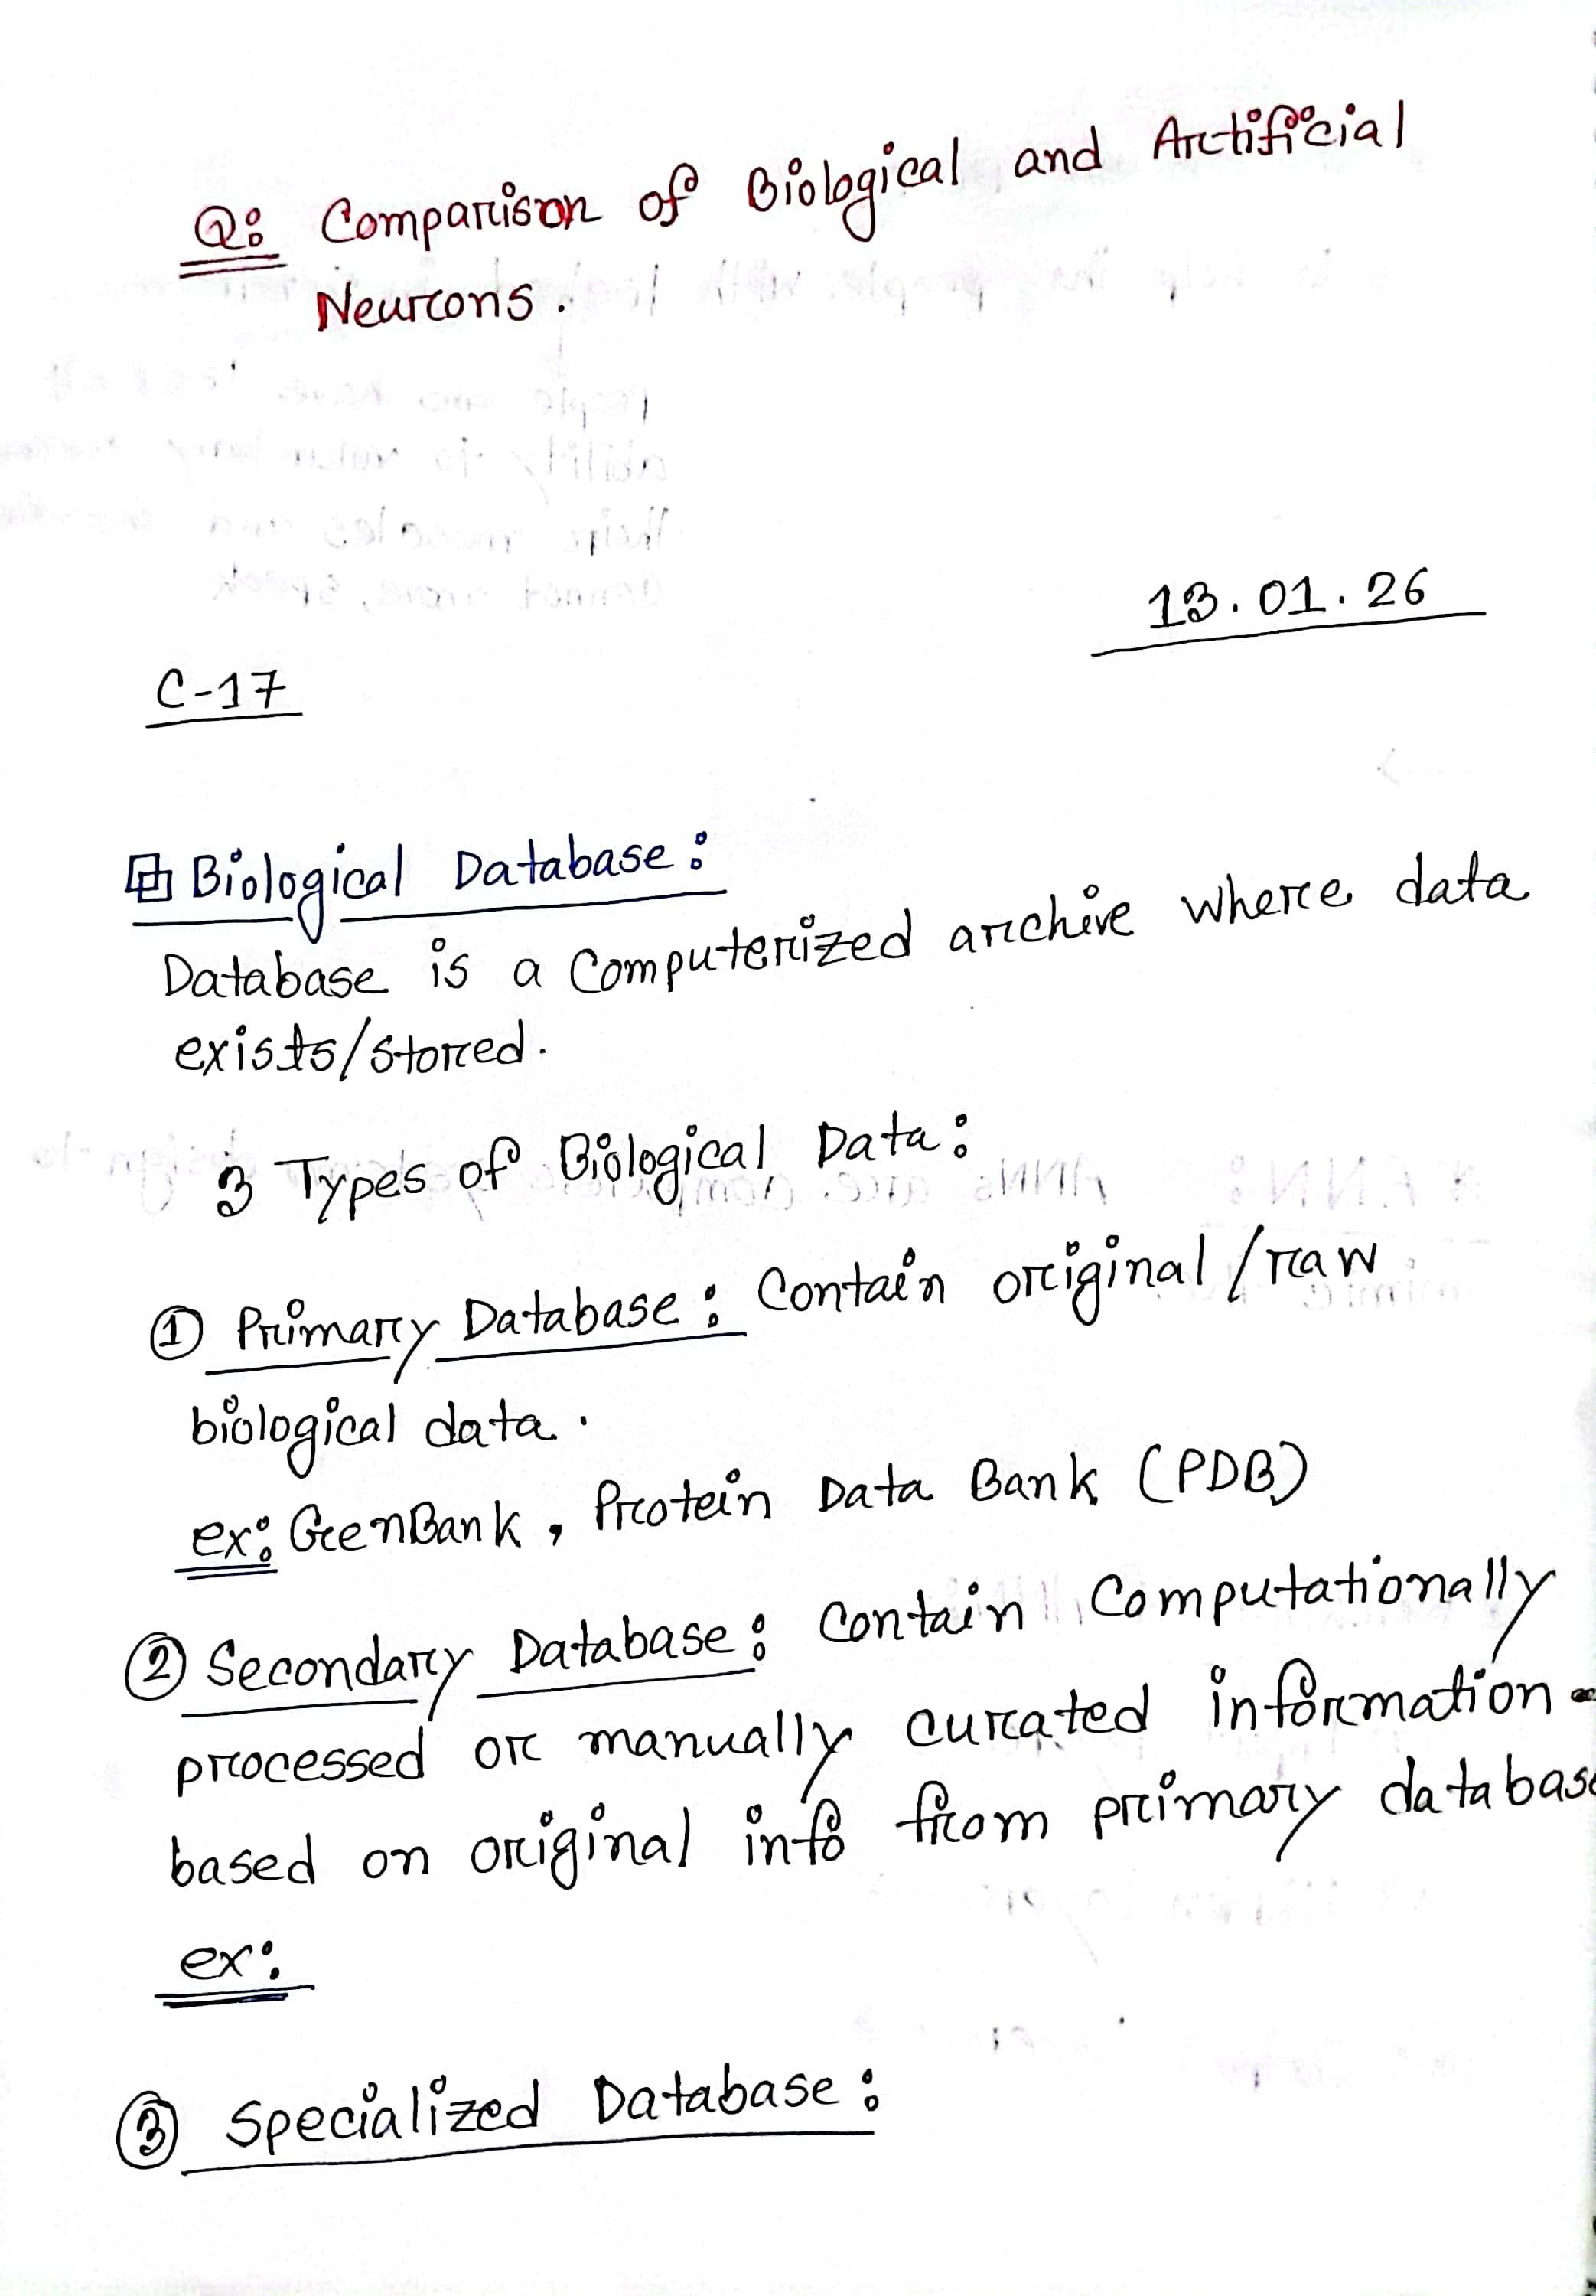 Q: Comparison of Biological and Artificial
Neurons.
13.01.26
C-17
Biological Database:
Database is a Computerized archive where data
exists/stored.
3 Types of Biological Data:
① Primary Database: Contain original/raw
biological data.
ex: GenBank, Protein Data Bank (PDB)
② Secondary Database: Contain Computationally
processed or manually curated information
based on original info from primary databas
ex:
③ Specialized Database: